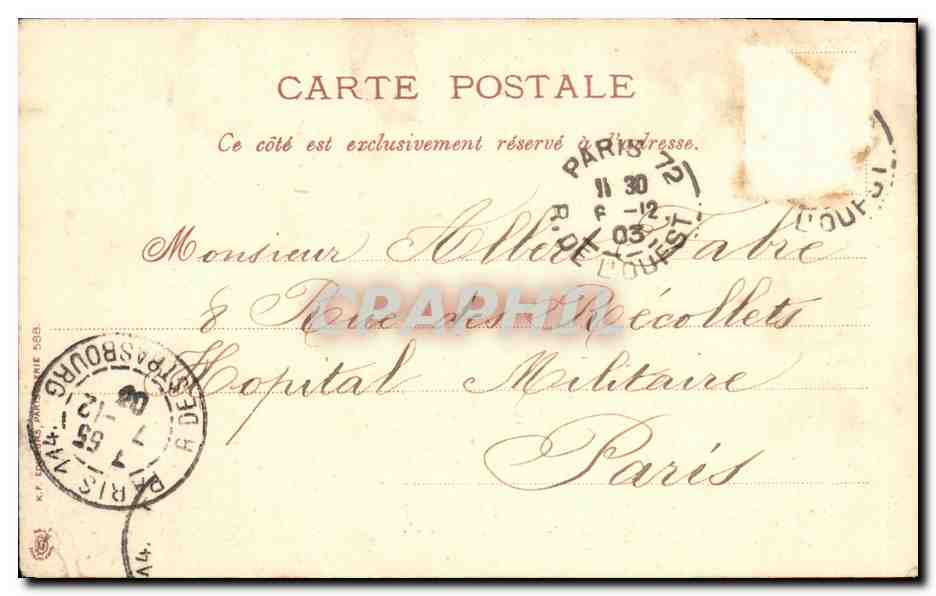 CARTE POSTALE
Ce côté est exclusivement réservé à l'adresse.
PARIS 72
11 30
6 -12
03
R. DE L'OUEST
L'OUEST
Monsieur Albert Fabre
8 Rue des Récollets
Hopital Militaire
Paris
CPAPHIL
PARIS 114.
R DE STRASBOURG
7 55
7 -12
03
114.
K.F. PARIS SÉRIE 588